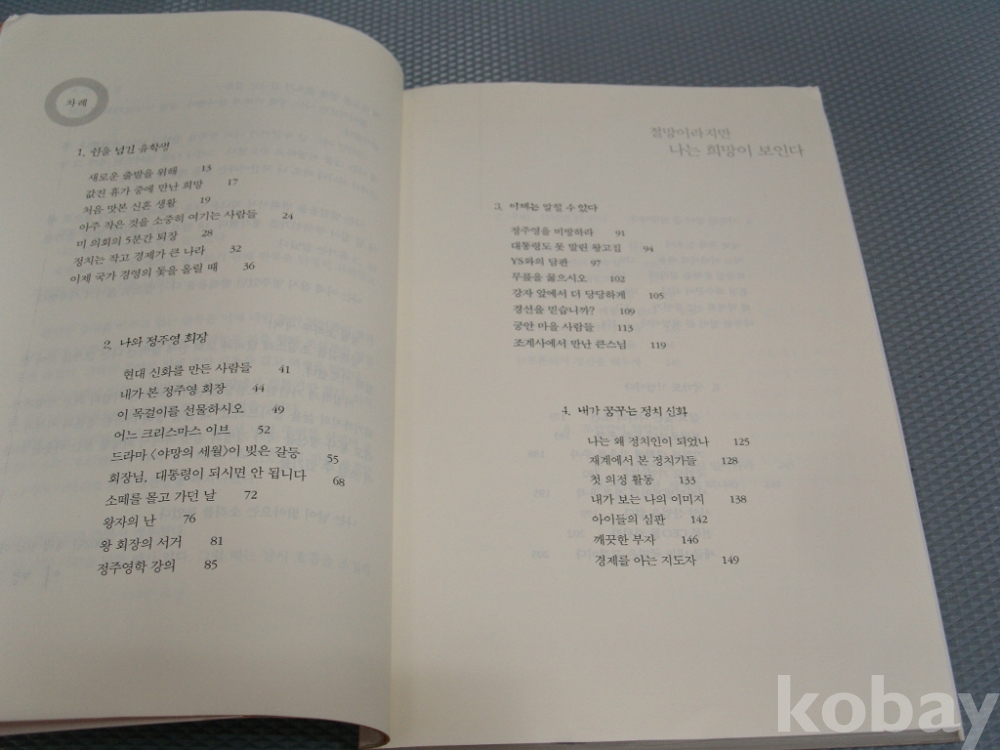 차례
1. 산을 넘긴 유학생
새로운 출발을 위해 13
값진 휴가 중에 만난 희망 17
처음 맛본 신혼 생활 19
아주 작은 것을 소중히 여기는 사람들 24
미 의회의 5분간 퇴장 28
정치는 작고 경제가 큰 나라 32
이제 국가 경영의 꽃을 올릴 때 36
2. 나와 정주영 회장
현대 신화를 만든 사람들 41
내가 본 정주영 회장 44
이 목걸이를 선물하시오 49
어느 크리스마스 이브 52
드라마 〈야망의 세월〉이 빚은 갈등 55
회장님, 대통령이 되시면 안 됩니다 68
소떼를 몰고 가던 날 72
왕자의 난 76
왕 회장의 서거 81
정주영학 강의 85
절망이라지만
나는 희망이 보인다
3. 이제는 말할 수 있다
정주영을 비방하라 91
대통령도 못 말린 황고집 94
YS와의 담판 97
무릎을 꿇으시오 102
강자 앞에서 더 당당하게 105
경선을 믿습니까? 109
궁안 마을 사람들 113
조계사에서 만난 큰스님 119
4. 내가 꿈꾸는 정치 신화
나는 왜 정치인이 되었나 125
재계에서 본 정치가들 128
첫 의정 활동 133
내가 보는 나의 이미지 138
아이들의 심판 142
깨끗한 부자 146
경제를 아는 지도자 149
kobay